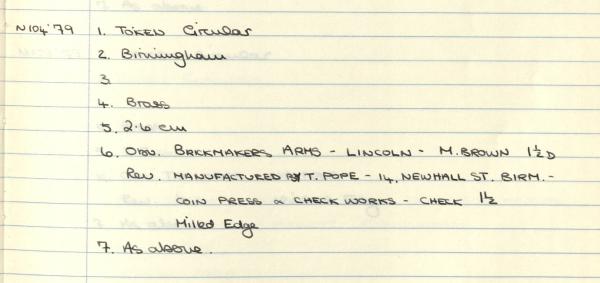 N104'79 1. TOKEN Circular
2. Birmingham
3.
4. Brass
5. 2.6 cm
6. Obv. BRICKMAKERS ARMS - LINCOLN - M. BROWN 1½D
Rev. MANUFACTURED BY T. POPE - 14, NEWHALL ST. BIRM. -
COIN PRESS & CHECK WORKS - CHECK 1½
Milled Edge
7. As above.